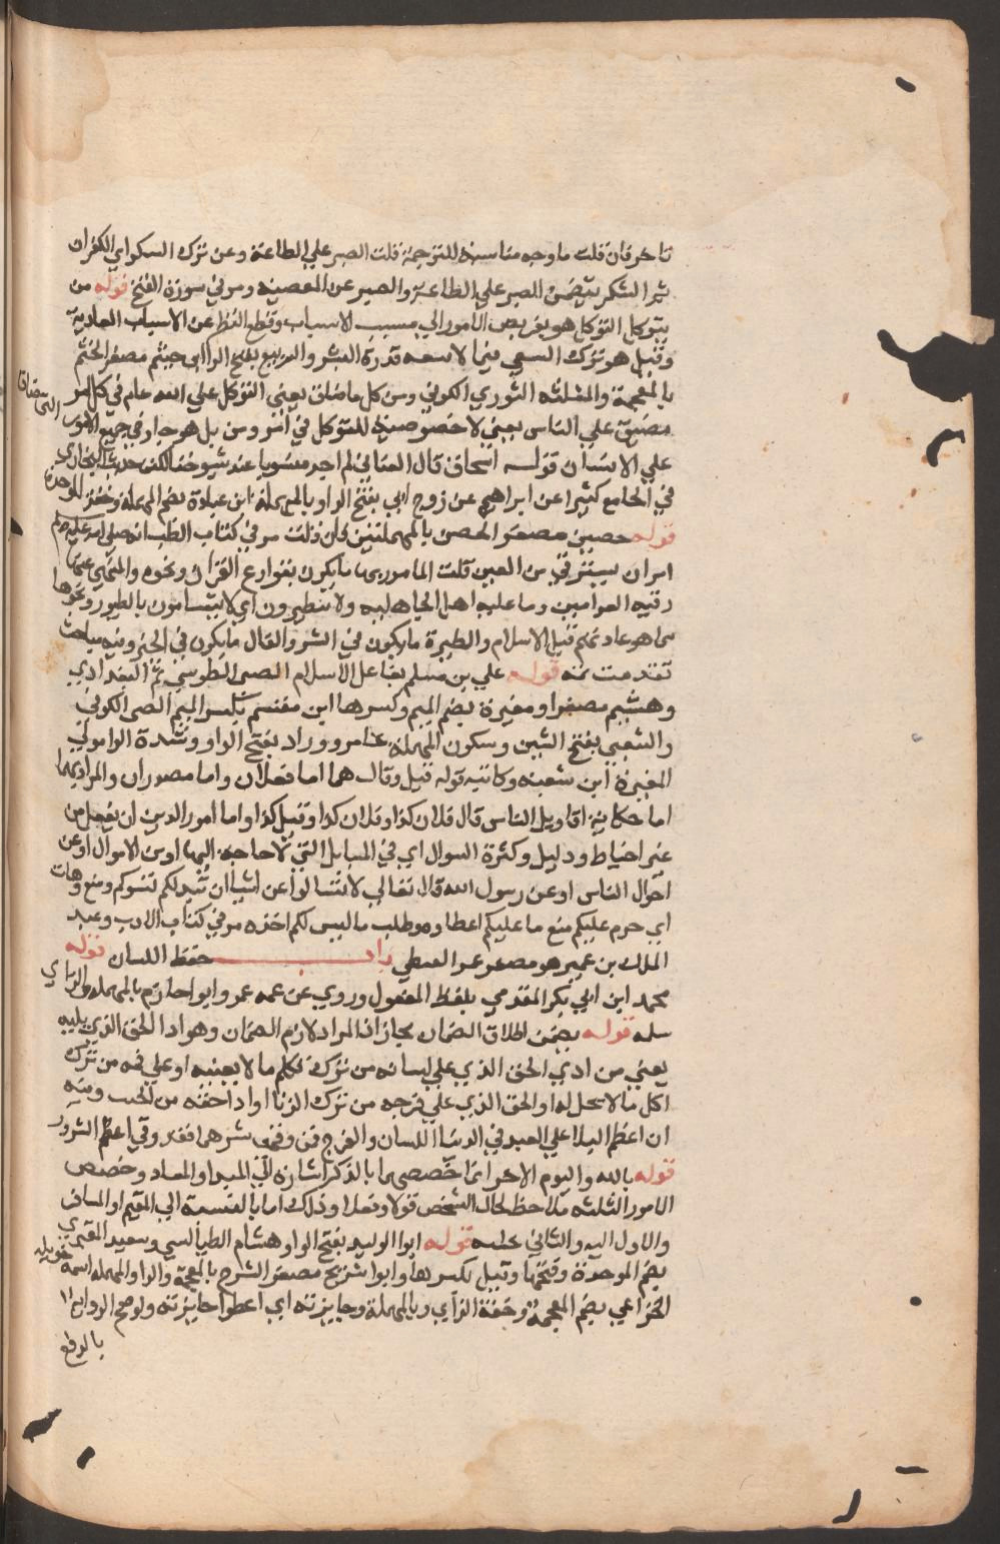 تاخر فان قلت ما وجه مناسبته للترجمة قلت الصبر علي الطاعة وعن ترك السكر اي الكفران
ثم الشكر يتضمن الصبر علي الطاعة والصبر عن المعصية ومر في سورة الفتح قوله من
يتوكل التوكل هو تفويض الامور الي مسبب الاسباب وقطع النظر عن الاسباب العادية
وقيل هو ترك السعي فيما لا تسعه قدرة البشر والربيع بفتح الرا ابن خيثم مصغر الخثم
بالمعجمة والمثلثه الثوري الكوفي ومن كل ما ضاق يعني التوكل علي الله عام في كل امر
مضيق علي الناس يعني لا خصوصية للتوكل في امر ومن بل هو جار في جميع الامور التي ضاق
علي الانسان قوله اسحاق قال الغساني لم اجد منسوبا عند شيوخنا لكن حدث البخاري
في الجامع كثيرا عن ابراهيم عن روح ابي بفتح الرا وبالمهملة ابن عبادة بضم المهملة وخفة الموحدة
قوله حصين مصغر الحصن بالمهملتين فان قلت مر في كتاب الطب انه صلي الله عليه وسلم
امر ان يسترقي من العين قلت المامور بها ما يكون بقوارع القران ونحوه والمنهي عنها
رقية العوامين وما عليه اهل الجاهلية ولا يتطيرون اي لا يتشامون بالطيور ونحوها
مما هو عادتهم قبل الاسلام والطيرة ما يكون في الشر والفال ما يكون في الخير وفيه مباحث
تقدمت ثمه قوله علي بن مسلم بفاعل الاسلام الطوسي ثم البغدادي
وهشيم مصغرا ومغيرة بضم الميم وكسرها ابن مقسم بكسر الميم الضبي الكوفي
والشعبي بفتح الشين وسكون المهملة عامر ووراد بفتح الواو وشدة الرا مولي
المغيرة ابن شعبة وكاتبه قوله قيل وقال هما اما فعلان واما مصدران والمراد بهما
اما حكاية اقاويل الناس قال فلان كذا وفلان كذا وقيل كذا واما امور الدين ان ينقل من
غير احتياط ودليل وكثرة السوال اي في المسايل التي لا حاجة اليها او من الاموال او عن
احوال الناس او عن رسول الله قال تعالي لا تسالوا عن اشيا ان تبد لكم تسوكم ومنع وهات
اي حرم عليكم منع ما عليكم اعطاوه وطلب ما ليس لكم اخذه مر في كتاب الادب وعبد
الملك بن عمير هو مصغر عمر القبطي باب حفظ اللسان قوله
محمد ابن ابي بكر المقدمي بلفظ المفعول وروي عن عمه عمر وابو حازم بالمهملة والزاي
سلمه قوله يضمن اطلاق الضمان مجاز اذ المراد لازم الضمان وهو ادا الحق الذي عليه
يعني من ادي الحق الذي علي لسانه من ترك تكلم ما لا يعنيه او علي فمه من ترك
اكل ما لا يحل له او الحق الذي علي فرجه من ترك الزنا او ادا حقه من وفيه
ان اعظم البلا علي العبد في الدنيا اللسان والفرج فمن وقي شرهما فقد وقي اعظم الشرور
قوله بالله واليوم الاخر انما خصصهما بالذكر اشارة الي المبدا والمعاد وخصص
الامور الثلثه ملاحظ لحال الشخص قولا وفعلا وذلك اما بالنسبة الي المقيم او المسافر
والاول اليه والثاني عليه قوله ابو الوليد بفتح الواو هشام الطيالسي وسعيد المقبري
بضم الموحدة وفتحها وقيل بكسرها وابو شريح مصغر الشرح بالمعجمة والرا والمهملة اسمه خويلد
الخزاعي بضم المعجمة وخفة الزاي وبالمهملة وجايزته اي اعطوا جايزته ولو صح الرواية
بالرفع